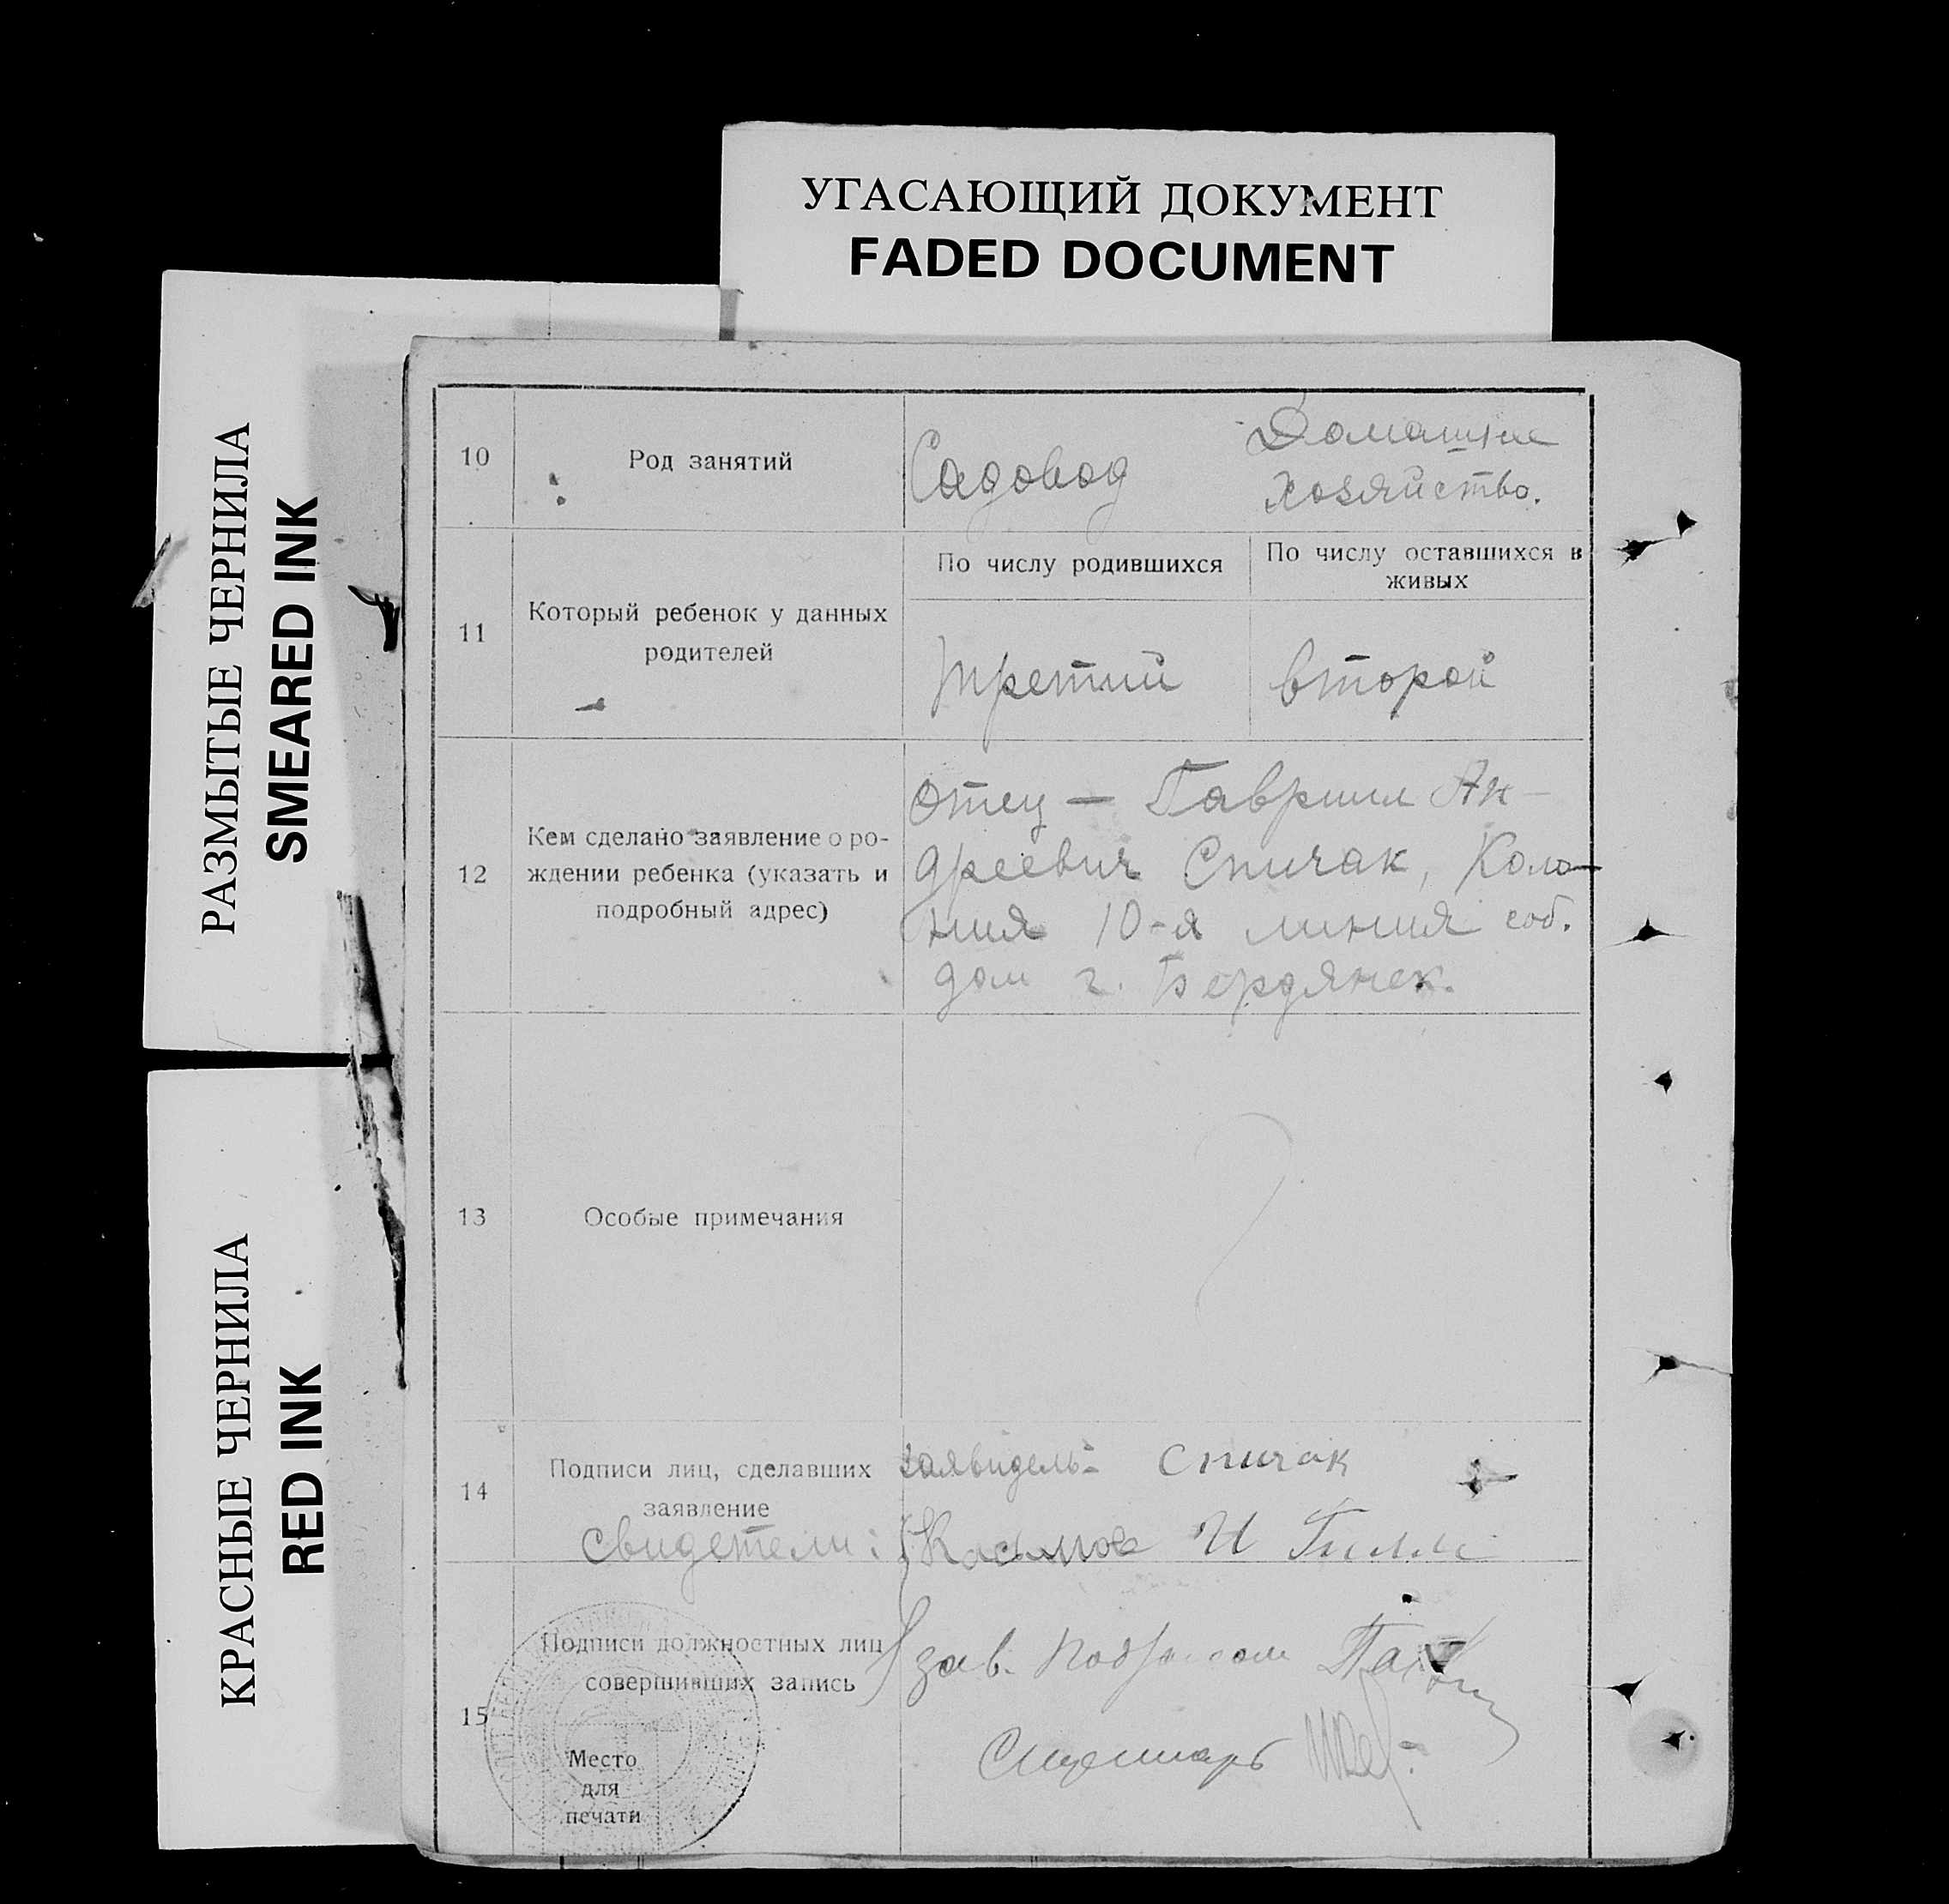 УГАСАЮЩИЙ ДОКУМЕНТ
FADED DOCUMENT
РАЗМЫТЫЕ ЧЕРНИЛА
SMEARED INK
КРАСНЫЕ ЧЕРНИЛА
RED INK
10
Род занятий
Садовод
Домашнее
хозяйство.
11
Который ребенок у данных
родителей
По числу родившихся
По числу оставшихся в
живых
третий
второй
12
Кем сделано заявление о ро-
ждении ребенка (указать и
подробный адрес)
отец — Гавриил Ан-
дреевич Спичак, Коло-
ния 10-я линия соб.
дом г. Бердянск.
13
Особые примечания
14
Подписи лиц, сделавших
заявление
Свидетели:
Спичак
И
15
Подписи должностных лиц
совершивших запись
Место
для
печати
зав.